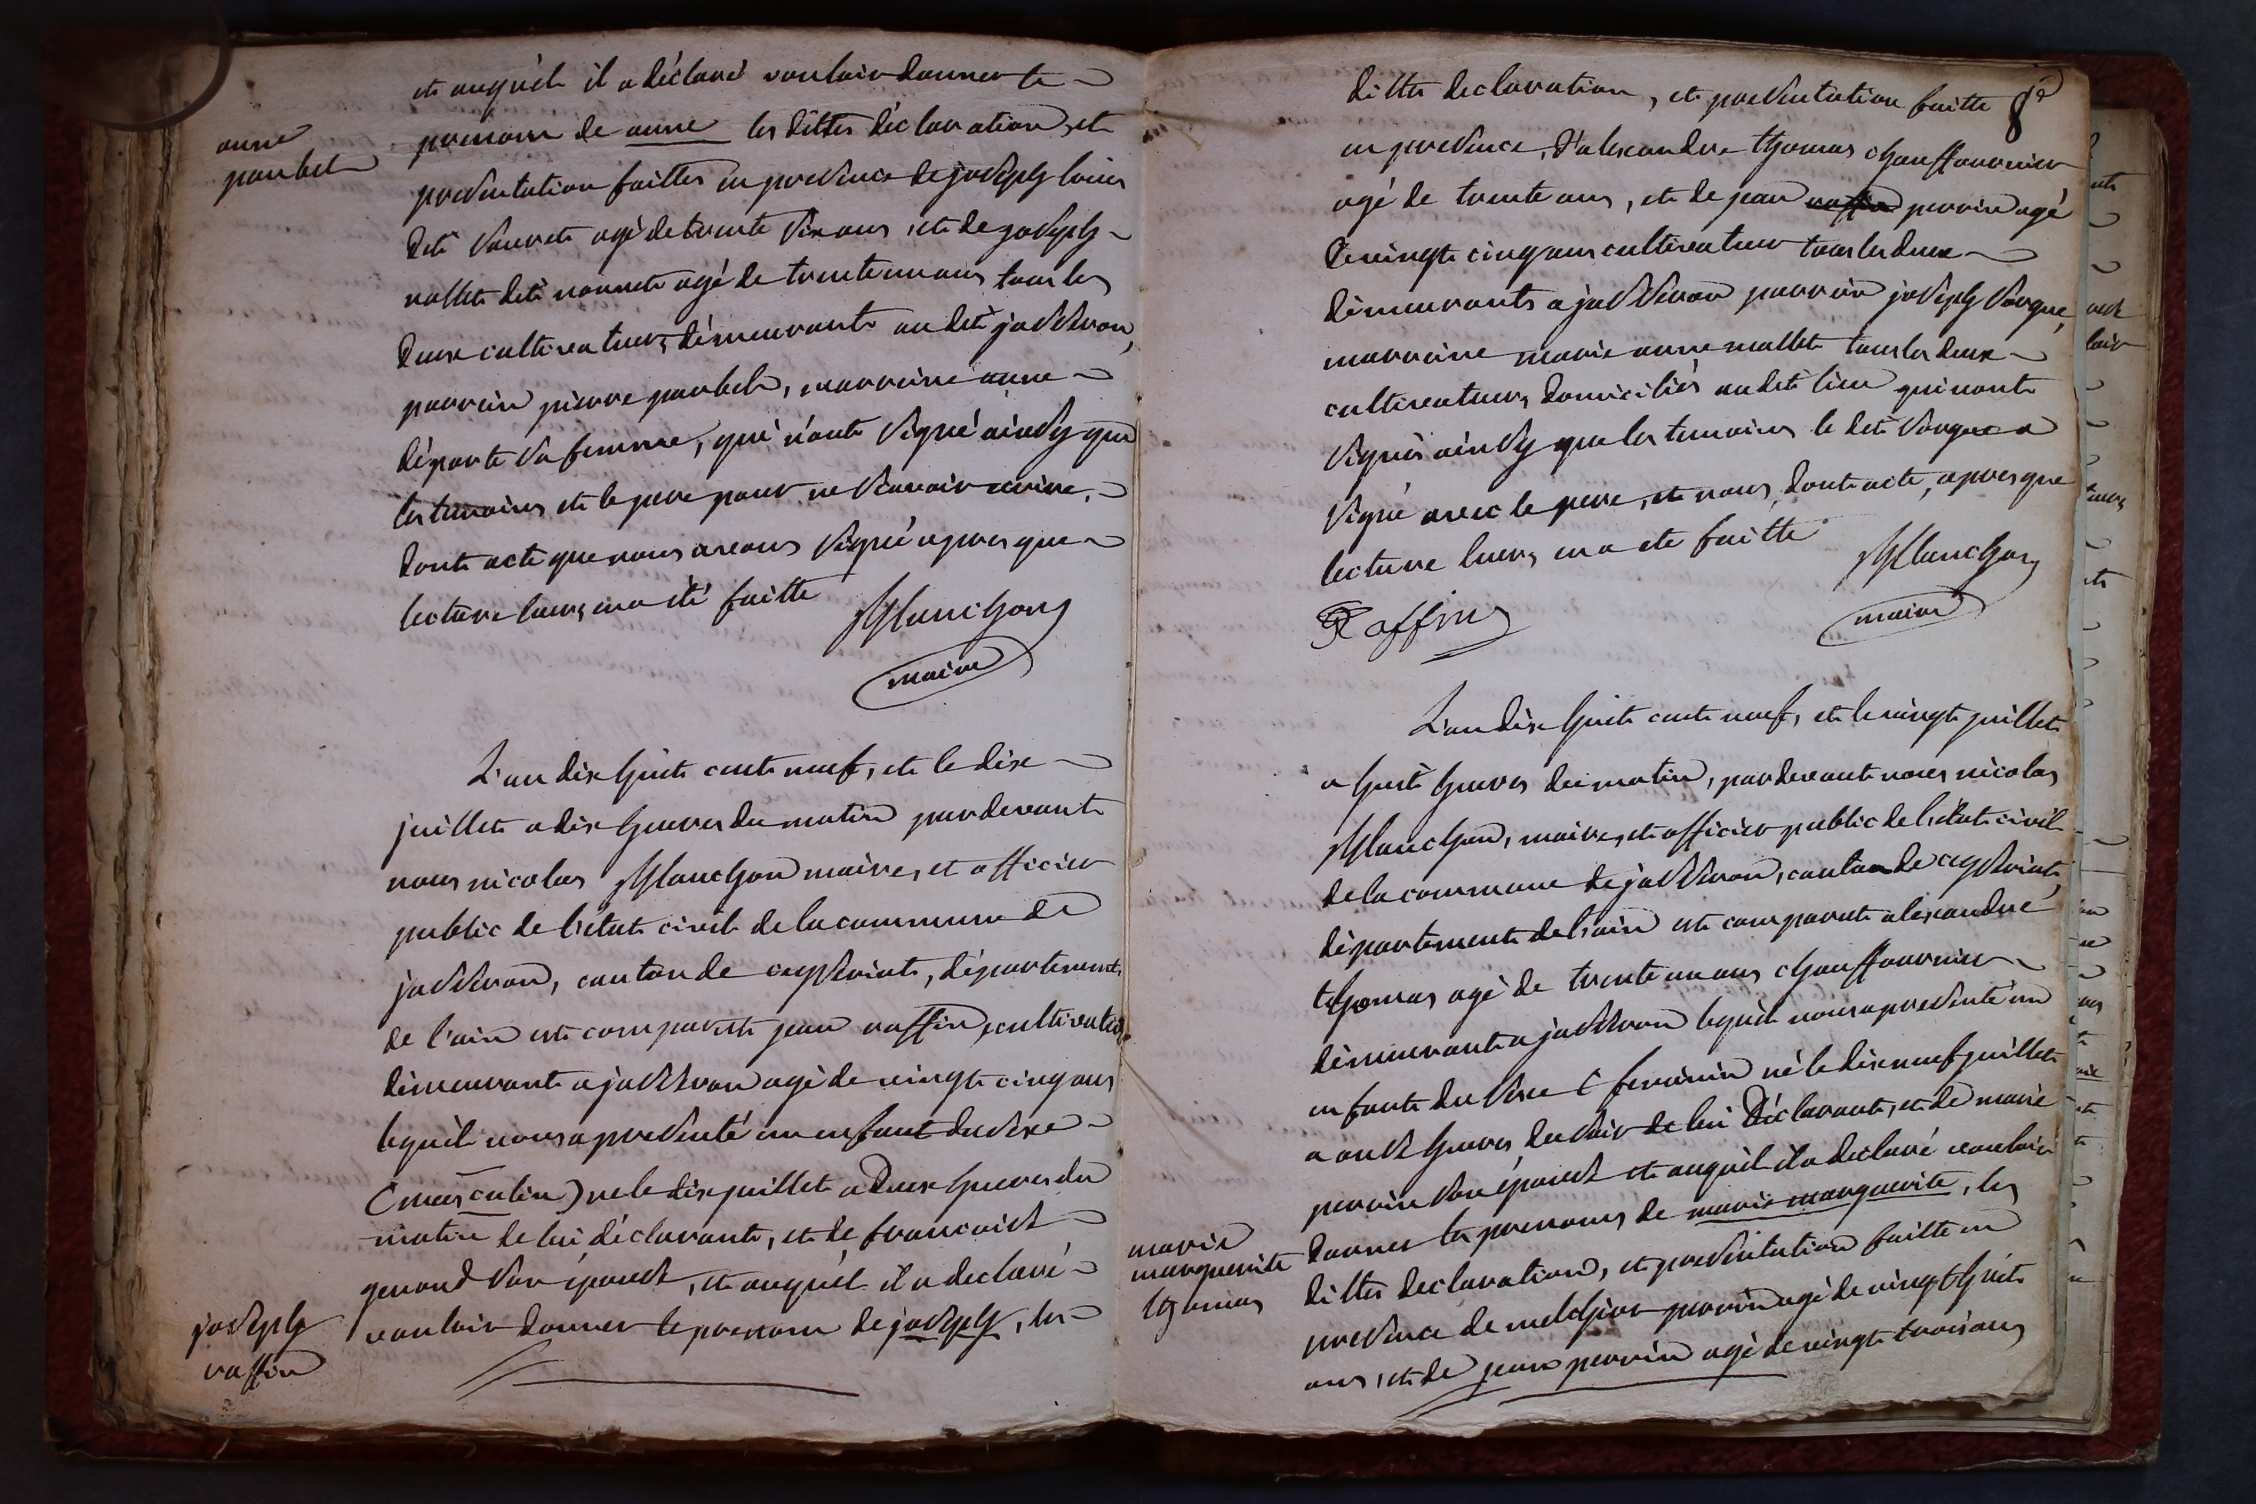 anne
paubel
et auquél il a déclaré vouloir donner le
prenom de anne les dittes déclaration, et
presentation faittes en presence de joseph
dit agé de trente six ans, et de joseph
nallet dit agé de trente un ans tous les
deux cultivateurs, démeurants au dit jasseron,
parrain pierre paubel, marraine anne
départe sa femme, qui n'ont signé ainsy que
les temoins et le pere pour ne sçavoir ecrire,
dont acte que nous avons signé apres que
lecture leurs en a été faitte
Manchon
maire
L'an dix huit cent neuf, et le dix
juillet a dix heures du matin pardevant
nous nicolas Manchon maire, et officier
public de l'état civil de la commune de
jasseron, canton de ceyseriat, département
de l'ain est comparut jean raffin, cultivateur
démeurant a jasseron agé de vingt cinq ans
lequél nous a presenté un enfant du sexe
(masculin) né le dix juillet a deux heures du
matin de lui déclarant, et de francoise
genod son épouse, et auquél il a declaré
vouloir donner le prenom de joseph, les
joseph
raffin
8e
dittes declaration, et presentation faitte
en presence, d'alexandre thomas chauffournier
agé de trente ans, et de jean raffin perrin agé
de vingt cinq ans cultivateur tous les deux
démeurants a jasseron parrain joseph vorgue,
marraine marie anne mallet tous les deux
cultivateurs, domiciliés au dit lieu qui n'ont
signés ainsy que les temoins le dit vorgue a
signé avec le pere, et nous, dont acte, apres que
lecture leurs en a eté faitte
Manchon
maire
Raffin
L'an dix huit cent neuf, et le vingt juillet
a huit heures du matin, pardevant nous nicolas
Manchon, maire, et officier public de l'état civil
de la commune de jasseron, canton de ceyseriat,
département de l'ain est comparut alexandre
thomas agé de trente un ans chauffournier
démeurant a jasseron lequél nous a presenté un
enfant du sexe feminin né le dix neuf juillet
a onze heures du soir de lui déclarant, et de marie
perrin son épouse et auquél il a declaré vouloir
donner les prenoms de marie marguerite, les
marie
marguerite
thomas
dittes declaration, et presentation faitte en
presence de melchior perrin agé de vingt huit
ans, et de jean perrin agé de vingt trois ans